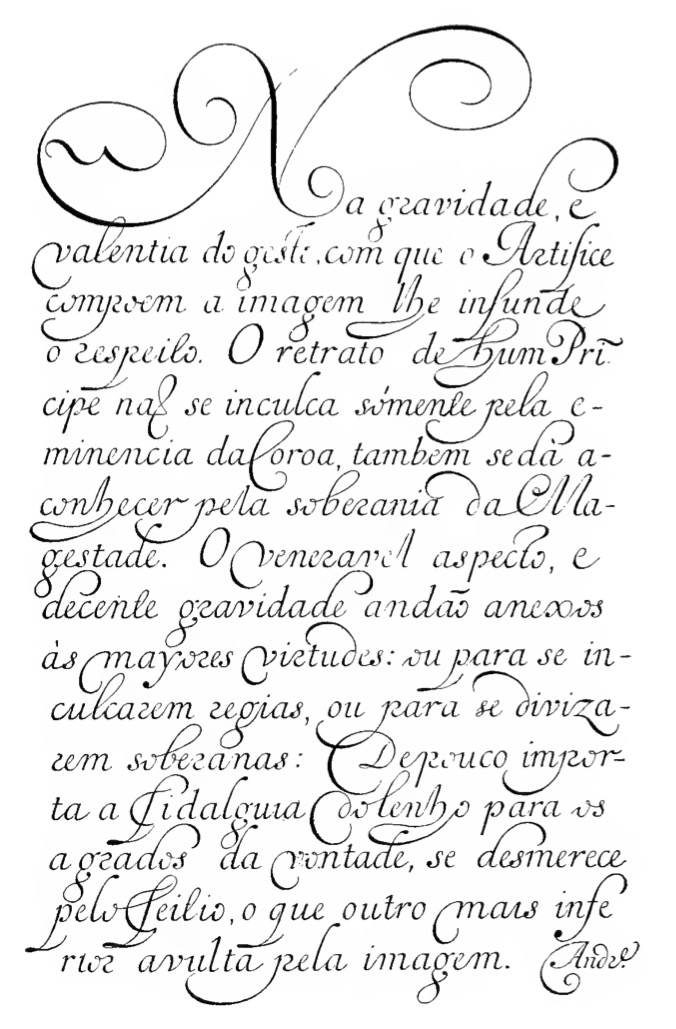 Na gravidade, e
valentia do gesto, com que o Artifice
compoem a imagem lhe infunde
o respeito. O retrato de hum Prĩ
cipe naõ se inculca sómente pela e-
minencia da Coroa, tambem se dà a-
conhecer pela soberania da Ma-
gestade. O veneravel aspecto, e
decente gravidade andão anexos
às mayores virtudes: ou para se in-
culcarem regias, ou para se diviza-
rem soberanas: De pouco impor-
ta a Fidalguia do lenho para os
agrados da vontade, se desmerece
pelo Feitio, o que outro mais infe
rior avulta pela imagem. Andr.e